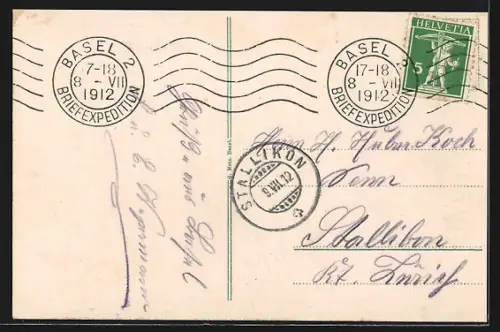 BASEL 2
7-18
8-VII
1912
BRIEFEXPEDITION
BASEL 2
17-18
8-VII
1912
BRIEFEXPEDITION
HELVETIA
5
STALLIKON
9.VII.12
Herrn H. Huber Koch
Senn
Stallikon
Kt. Zürich
Gruss aus Basel